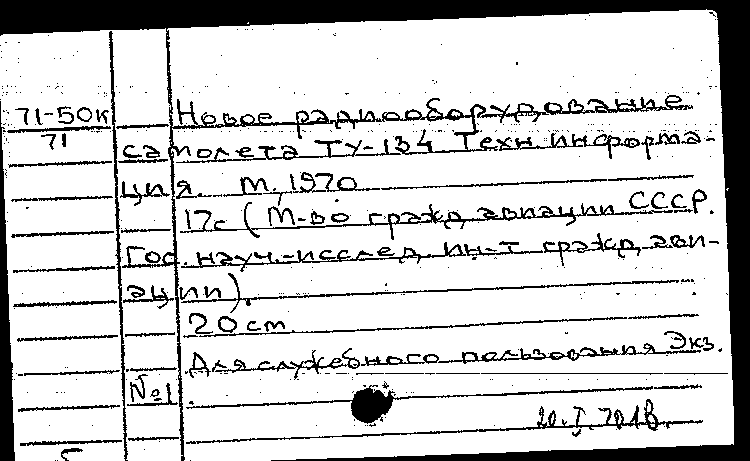 71-50к Новое радиооборудование
71 самолета ТУ-134 Техн. информа-
ция. М., 1970
17с (М-во гражд авиации СССР.
Гос. науч.-исслед. ин-т гражд ави-
ации).
20cm.
Для служебного пользования Экз.
№1.